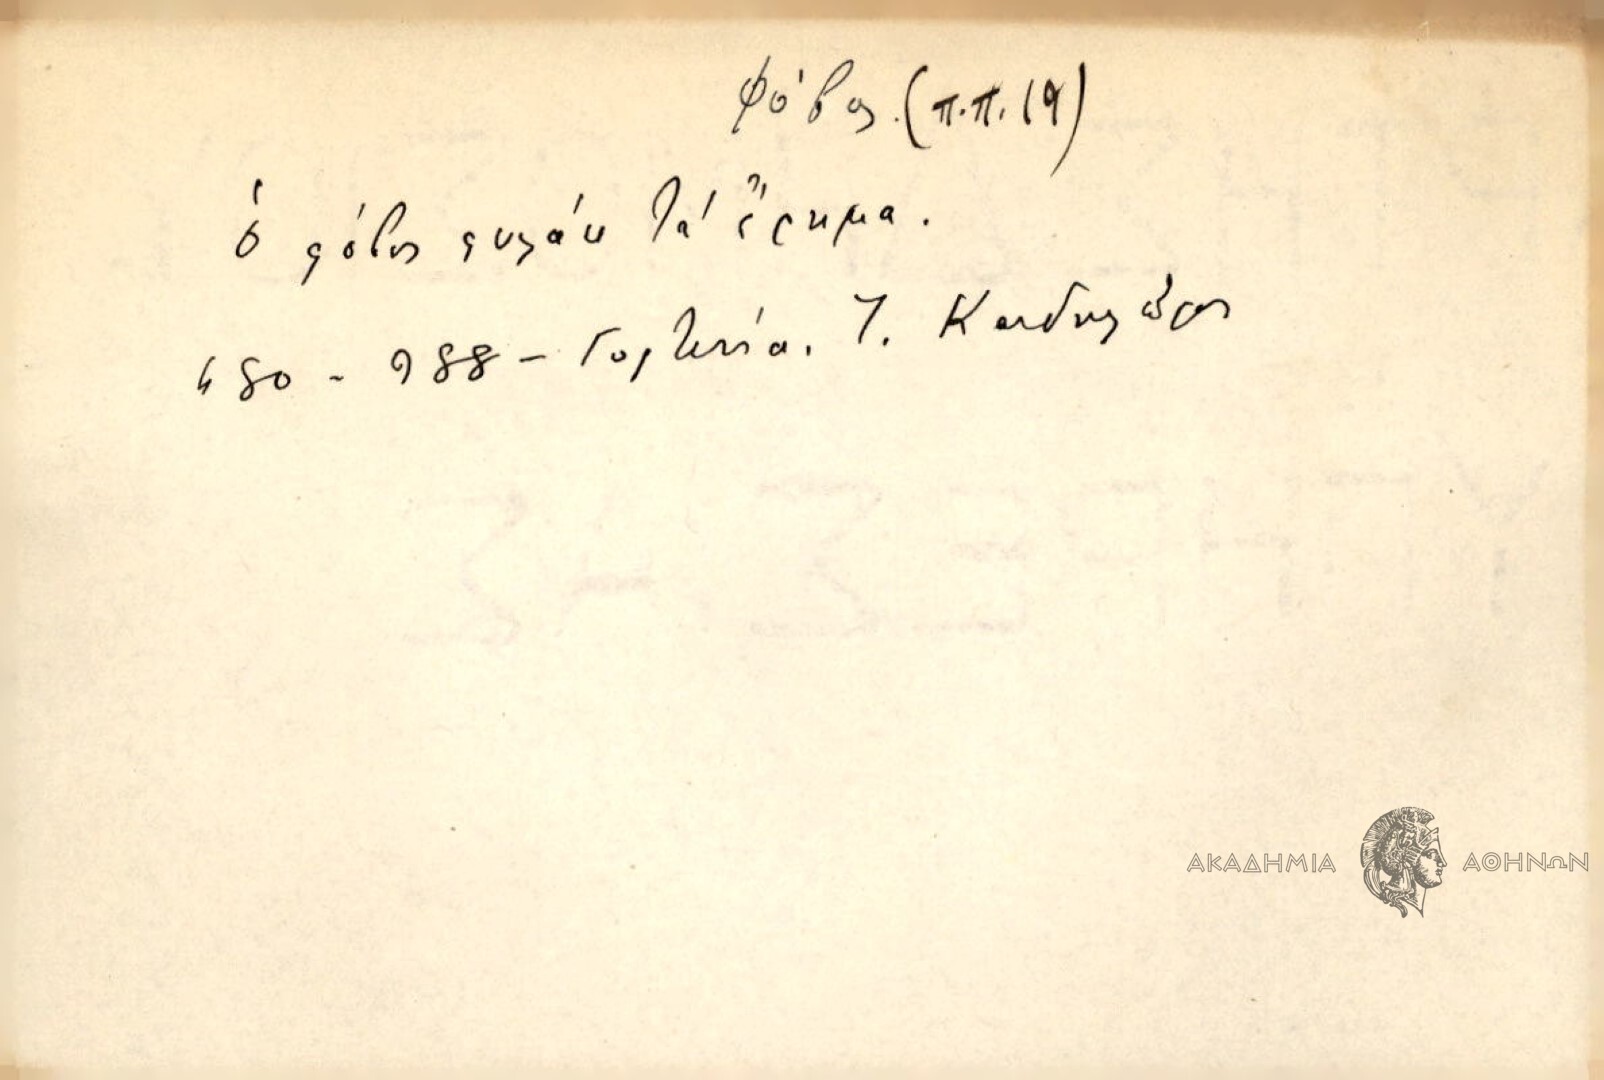 Φόβος. (π.π. 19)
ὁ φόβος φυλάει τά ἔρημα.
480 - 988 - Γορτυνία. Τ. Κανδηλῶρος
ΑΚΑΔΗΜΙΑ ΑΘΗΝΩΝ